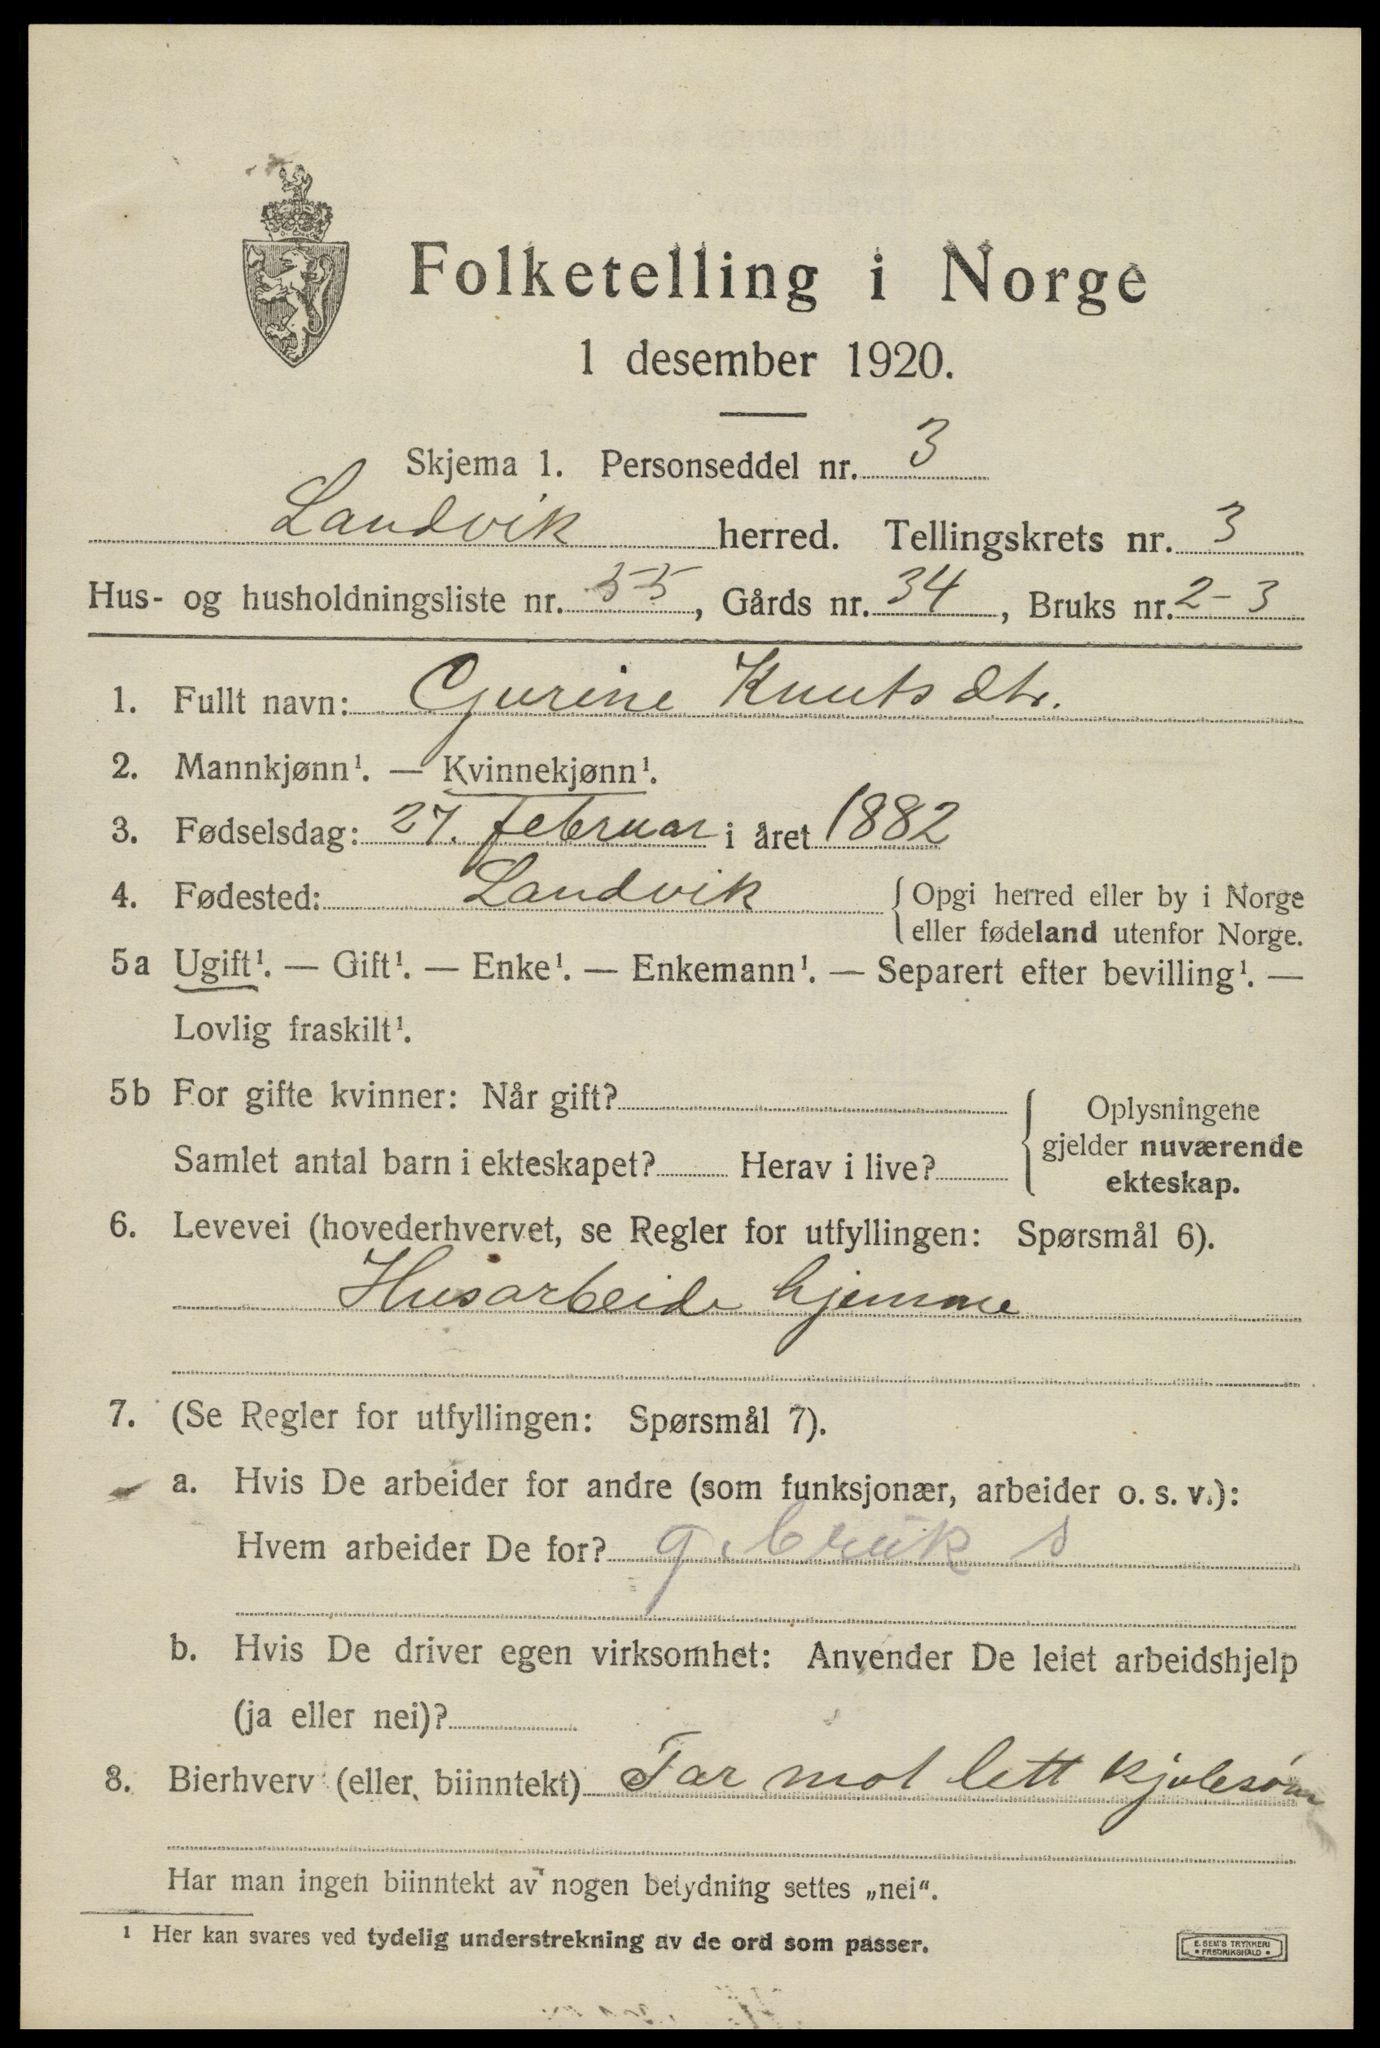 Folketelling i Norge
1 desember 1920.
Skjema 1. Personseddel nr. 3
Landvik herred. Tellingskrets nr. 3
Hus- og husholdningsliste nr. 55, Gårds nr. 34, Bruks nr. 2-3
1. Fullt navn: Gurine Knutsdtr.
2. Mannkjønn¹. — Kvinnekjønn¹.
3. Fødselsdag: 27. februar i året 1882
4. Fødested: Landvik { Opgi herred eller by i Norge
eller fødeland utenfor Norge.
5a Ugift¹. — Gift¹. — Enke¹. — Enkemann¹. — Separert efter bevilling¹. —
Lovlig fraskilt¹.
5b For gifte kvinner: Når gift?
Samlet antal barn i ekteskapet? Herav i live?
{ Oplysningene
gjelder nuværende
ekteskap.
6. Levevei (hovederhvervet, se Regler for utfyllingen: Spørsmål 6).
Husarbeide hjemme
7. (Se Regler for utfyllingen: Spørsmål 7).
a. Hvis De arbeider for andre (som funksjonær, arbeider o. s. v.):
Hvem arbeider De for? g.bruk s
b. Hvis De driver egen virksomhet: Anvender De leiet arbeidshjelp
(ja eller nei)?
8. Bierhverv (eller biinntekt) Tar mot lett kjolesøm
Har man ingen biinntekt av nogen betydning settes „nei“.
¹ Her kan svares ved tydelig understrekning av de ord som passer.
E. SEM'S TRYKKERI
• FREDRIKSHALD •